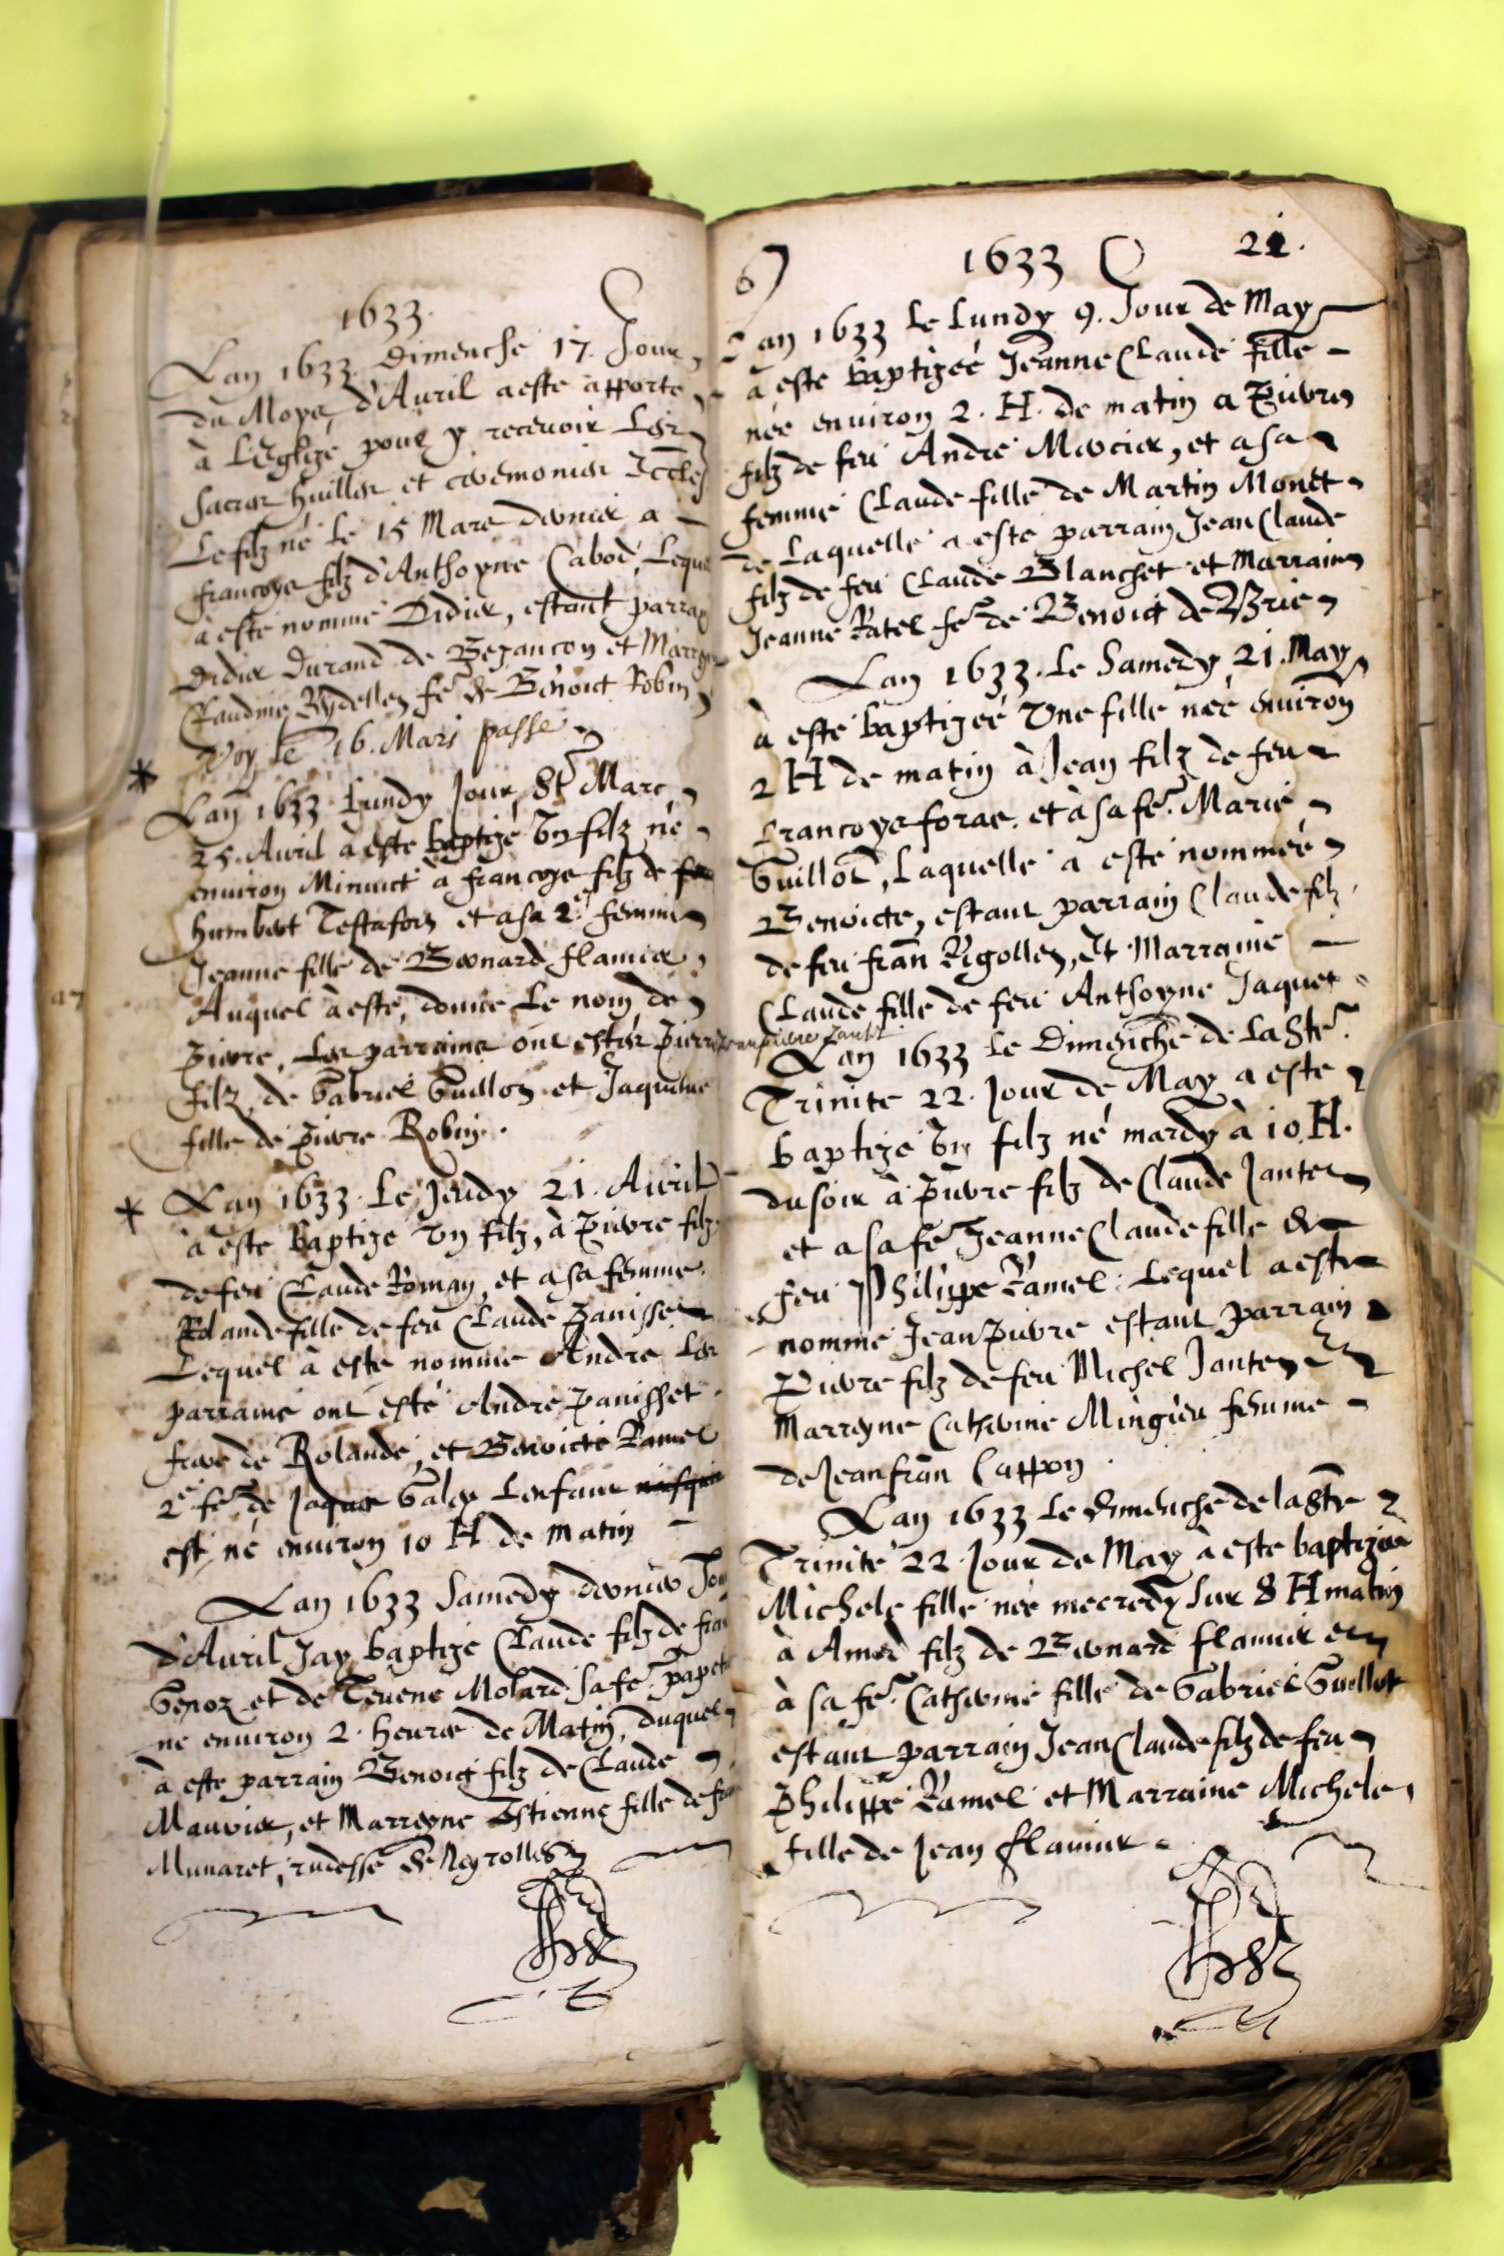 1633.
Lan 1633 Dimenche 17. Jour
du Moys d'Auril a este apporte
à L'Eglize pour y recevoir Les
sacres huilles et ceremonies Eccles
Le filz né Le 15 Mars dernier a
francoys filz d'Anthoyne Cabod, Leque
à este nommé Didier, estant parrai
Didier Durand de Bezancon et Marrai
Claudine Rydellez fe de Benoict Robin
Voy le 16. Mars passe
* Lan 1633 Lundy Jour St Marc
25. Auril à este baptizé Vn filz né
enuiron Minuict à francoys filz de feu
humbert Testafort et a sa 2e femme
Jeanne fille de Bernard flamier
Auquel à este, donné Le nom de
Pierre, Les parrains ont estes Pierre
filz, de Gabriel Guillon et Jaquême
fille de Pierre Robin.
* Lan 1633 Le Jeudy 21. Auril
à este Baptizé Vn filz, à Pierre filz
de feu Claude Roman, et a sa femme
Rolande fille de feu Claude Panisset
Lequel à este nommé André Les
parrains ont esté André Panisset
frere de Rolande, et Benoicte Ramel
2e fe de Jaques Galey Lenfant
est né enuiron 10 H de Matin
Lan 1633 Samedy dernier Jou
d'Auril Jay baptizé Claude filz de fra
Genoz et de Teuene Molard sa fe
ne enuiron 2. heures de Matin, duquel
à este parrain Benoict filz de Claude
Mauvier, et Marreyne Estienne fille de
Munaret, de Neyrolles
1633 21.
Lan 1633 Le Lundy 9. Jour de May
à este baptizée Jeanne Claude fille
née enuiron 2. H. de matin a Pierre
filz de feu André Mercier, et a sa
femme Claude fille de Martin Monet
de Laquelle a este parrain Jean Claude
filz de feu Claude Blanchet et Marraine
Jeanne Ratel fe de Benoict de Brie
Lan 1633. Le Samedy 21. May
à este baptizée Vne fille née enuiron
2 H de matin à Jean filz de feu
francoys foras. et à sa fe Marie
Guillot, Laquelle a este nommée
Benoicte, estant parrain Claude filz
de feu fran Rigollez, Et Marraine
Claude fille de feu Anthoyne Jaquet
Jean pierre Jantet
Lan 1633 Le Dimenche de La Ste
Trinite 22. Jour de May a este
baptizé Vn filz né mardy à 10 H.
du soir à Pierre filz de Claude Jantet
et a sa fe Jeanne Claude fille de
feu Philippe Ramel. Lequel a este
nommé Jean Pierre estant parrain
Pierre filz de feu Michel Jantet
Marreyne Catherine Mingieu femme
de Jean fran Cappon.
Lan 1633 Le Dimenche de la Ste
Trinité 22. Jour de May à este baptizée
Michele fille née mecredy sur 8 H matin
à Amed filz de Bernard flamier et
à sa fe Catherine fille de Gabriel Guillot
estant parrain Jean Claude filz de feu
Philippe Ramel et Marraine Michele
fille de Jean flamier